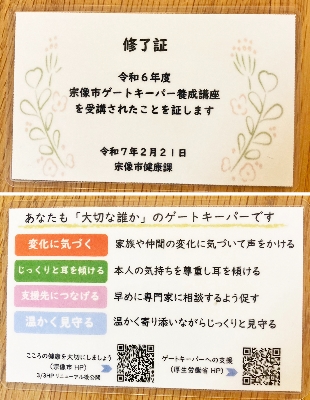 修了証
令和6年度
宗像市ゲートキーパー養成講座
を受講されたことを証します
令和7年2月21日
宗像市健康課
あなたも「大切な誰か」のゲートキーパーです
変化に気づく 家族や仲間の変化に気づいて声をかける
じっくりと耳を傾ける 本人の気持ちを尊重し耳を傾ける
支援先につなげる 早めに専門家に相談するよう促す
温かく見守る 温かく寄り添いながらじっくりと見守る
こころの健康を大切にしましょう
(宗像市 HP)
3/3HPリニューアル後公開
ゲートキーパーへの支援
(厚生労働省 HP)